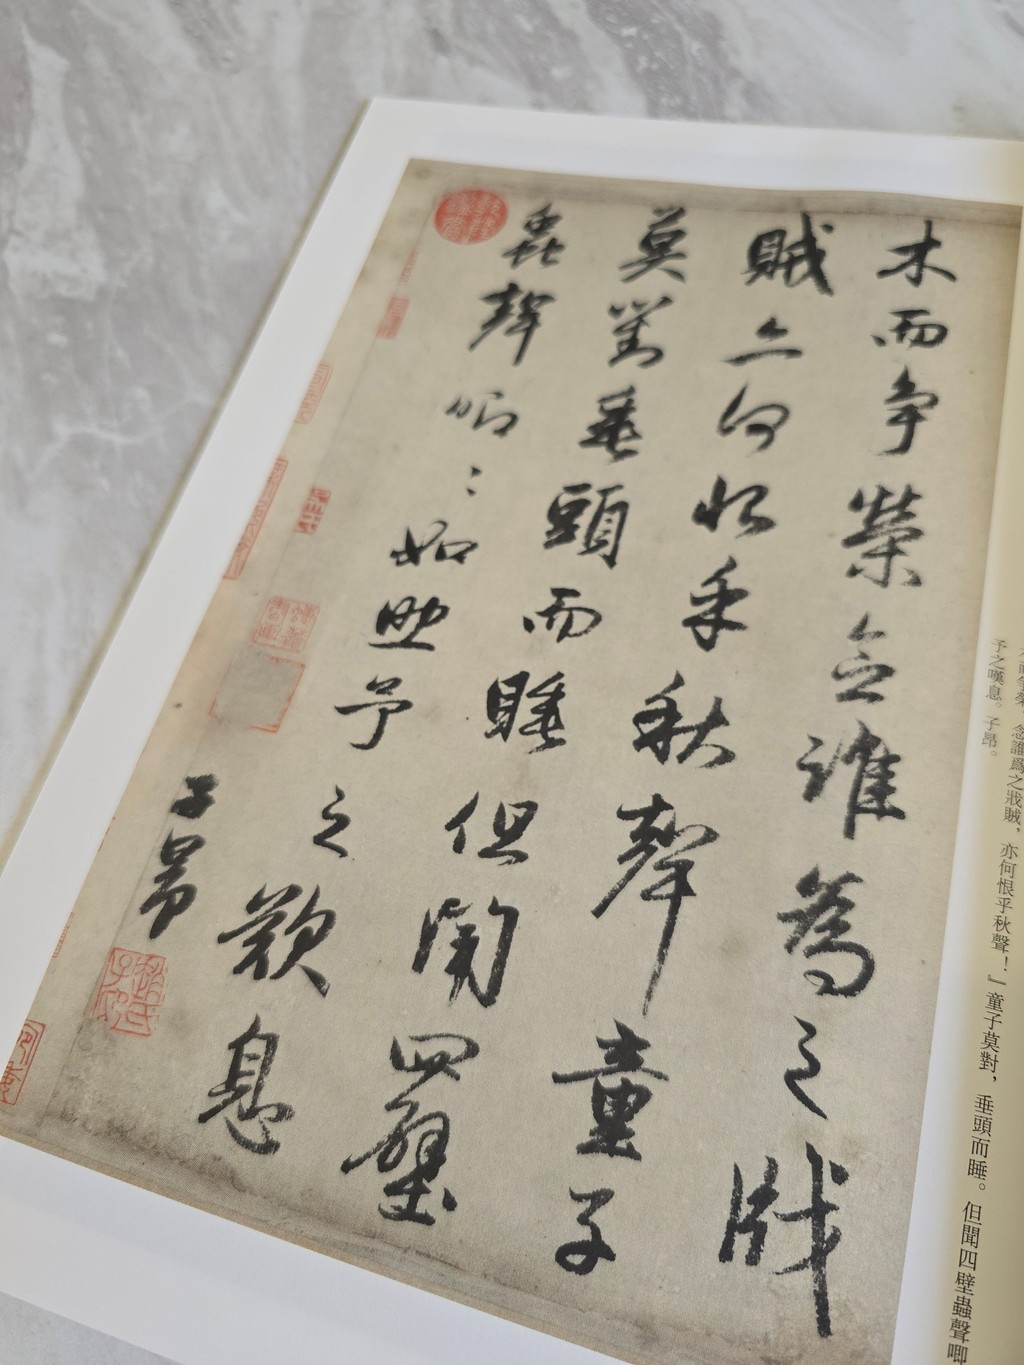 争榮，念誰爲之戕賊，亦何恨乎秋聲！』童子莫對，垂頭而睡。但聞四壁蟲聲唧
予之嘆息。子昂。
木而争榮念誰為之戕
賊亦何恨乎秋聲童子
莫對垂頭而睡但聞四壁
蟲聲唧〻如助予之歎息
子昂
趙氏子昂